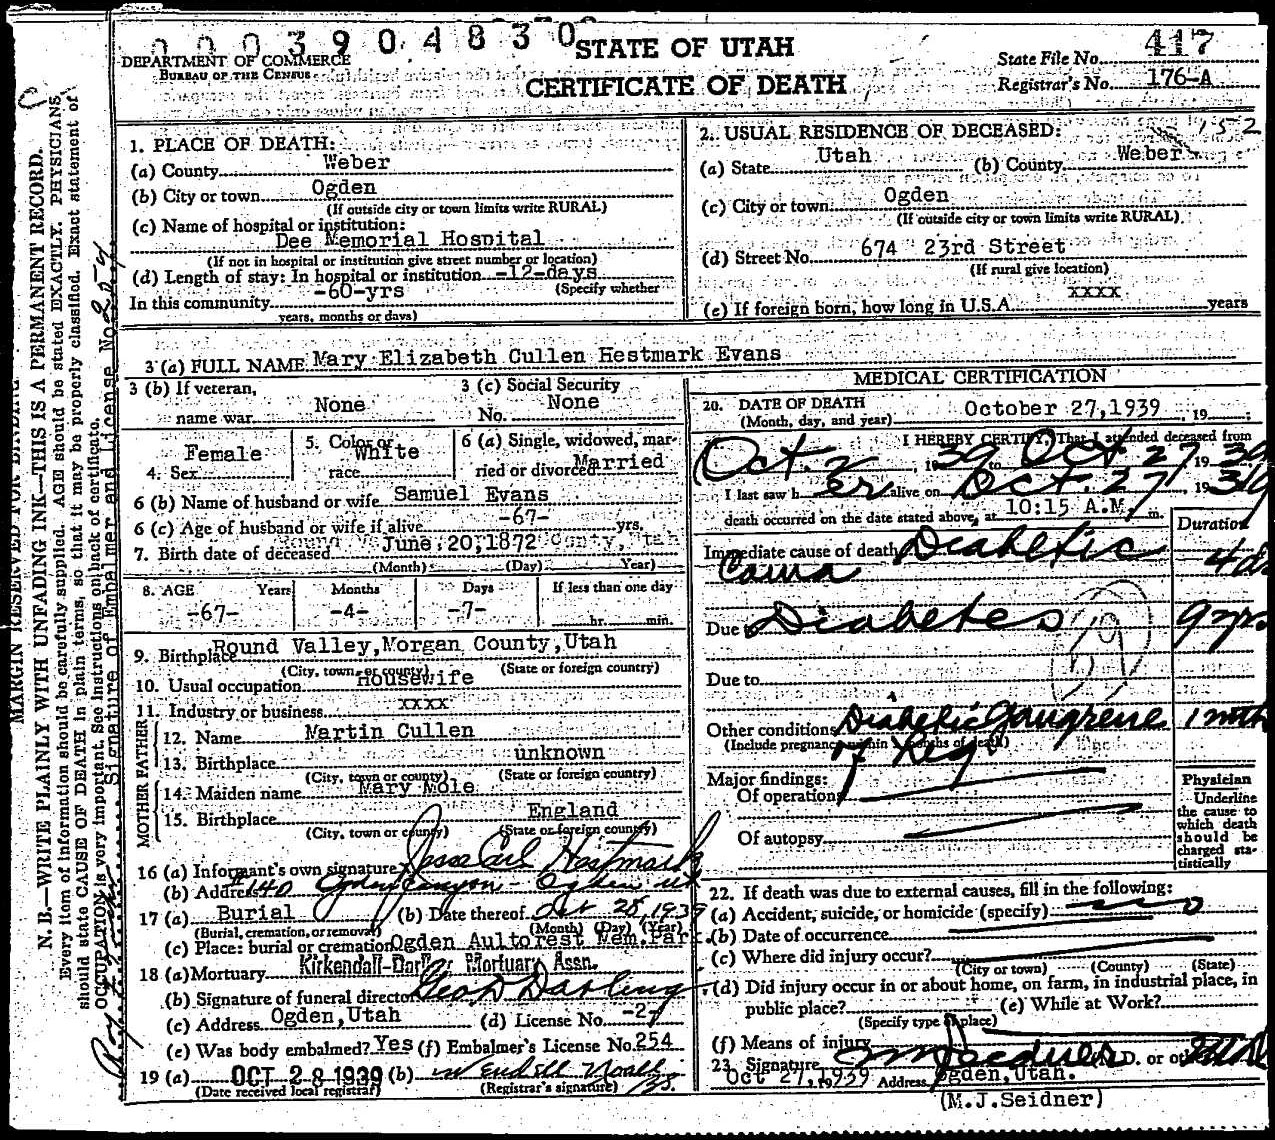 0003904830
STATE OF UTAH
CERTIFICATE OF DEATH
DEPARTMENT OF COMMERCE
BUREAU OF THE CENSUS
State File No. 417
Registrar's No. 176-A
152
MARGIN RESERVED FOR BINDING
N. B.—WRITE PLAINLY WITH UNFADING INK—THIS IS A PERMANENT RECORD.
Every item of information should be carefully supplied. AGE should be stated EXACTLY. PHYSICIANS
should state CAUSE OF DEATH in plain terms, so that it may be properly classified. Exact statement of
OCCUPATION is very important. See instructions on back of certificate.
Signature of Embalmer and License No. 254
1. PLACE OF DEATH:
(a) County Weber
(b) City or town Ogden
(If outside city or town limits write RURAL)
(c) Name of hospital or institution:
Dee Memorial Hospital
(If not in hospital or institution give street number or location)
(d) Length of stay: In hospital or institution -12-days
(Specify whether
In this community -60-yrs
years, months or days)
2. USUAL RESIDENCE OF DECEASED:
(a) State Utah (b) County Weber
(c) City or town Ogden
(If outside city or town limits write RURAL)
(d) Street No. 674 23rd Street
(If rural give location)
(e) If foreign born, how long in U.S.A. xxxx years
3 (a) FULL NAME Mary Elizabeth Cullen Hestmark Evans
3 (b) If veteran, name war None
3 (c) Social Security No. None
4. Sex Female
5. Color or race White
6 (a) Single, widowed, married or divorced Married
6 (b) Name of husband or wife Samuel Evans
6 (c) Age of husband or wife if alive -67- yrs.
7. Birth date of deceased June 20, 1872
(Month) (Day) Year)
8. AGE Years Months Days If less than one day
-67- -4- -7- hr. min.
9. Birthplace Round Valley, Morgan County, Utah
(City, town or county) (State or foreign country)
10. Usual occupation Housewife
11. Industry or business xxxx
FATHER
12. Name Martin Cullen
13. Birthplace unknown
(City, town or county) (State or foreign country)
MOTHER
14. Maiden name Mary Mole
15. Birthplace England
(City, town or county) (State or foreign country)
16 (a) Informant's own signature Jesse Carl Hestmark
(b) Address 1140 Ogden Canyon - Ogden Ut
17 (a) Burial (b) Date thereof Oct 28, 1939
(Burial, cremation, or removal) (Month) (Day) (Year)
(c) Place: burial or cremation Ogden Aultorest Mem. Park.
18 (a) Mortuary Kirkendall-Darling Mortuary Assn.
(b) Signature of funeral director Geo D Darling
(c) Address Ogden, Utah (d) License No. -2-
(e) Was body embalmed? Yes (f) Embalmer's License No. 254
19 (a) OCT 28 1939 (b)
(Date received local registrar) (Registrar's signature)
MEDICAL CERTIFICATION
20. DATE OF DEATH October 27, 1939, 19
(Month, day, and year)
I HEREBY CERTIFY, That I attended deceased from
Oct. 2, 1939 to Oct 27 1939
I last saw her alive on Oct. 27, 1939
death occurred on the date stated above, at 10:15 A.M. m.
Duration
Immediate cause of death Diabetic Coma 4 ds
Due to Diabetes 9 yrs
59
Due to
Other conditions Diabetic Gangrene of leg 1 mth
(Include pregnancy within 3 months of death)
Major findings:
Of operation
Of autopsy
Physician
Underline the cause to which death should be charged statistically
22. If death was due to external causes, fill in the following:
(a) Accident, suicide, or homicide (specify) no
(b) Date of occurrence
(c) Where did injury occur?
(City or town) (County) (State)
(d) Did injury occur in or about home, on farm, in industrial place, in
public place? (e) While at Work?
(Specify type of place)
(f) Means of injury
23. Signature M J Seidner (M.D. or other) M D
Oct 27, 1939 Address Ogden, Utah.
(M.J.Seidner)